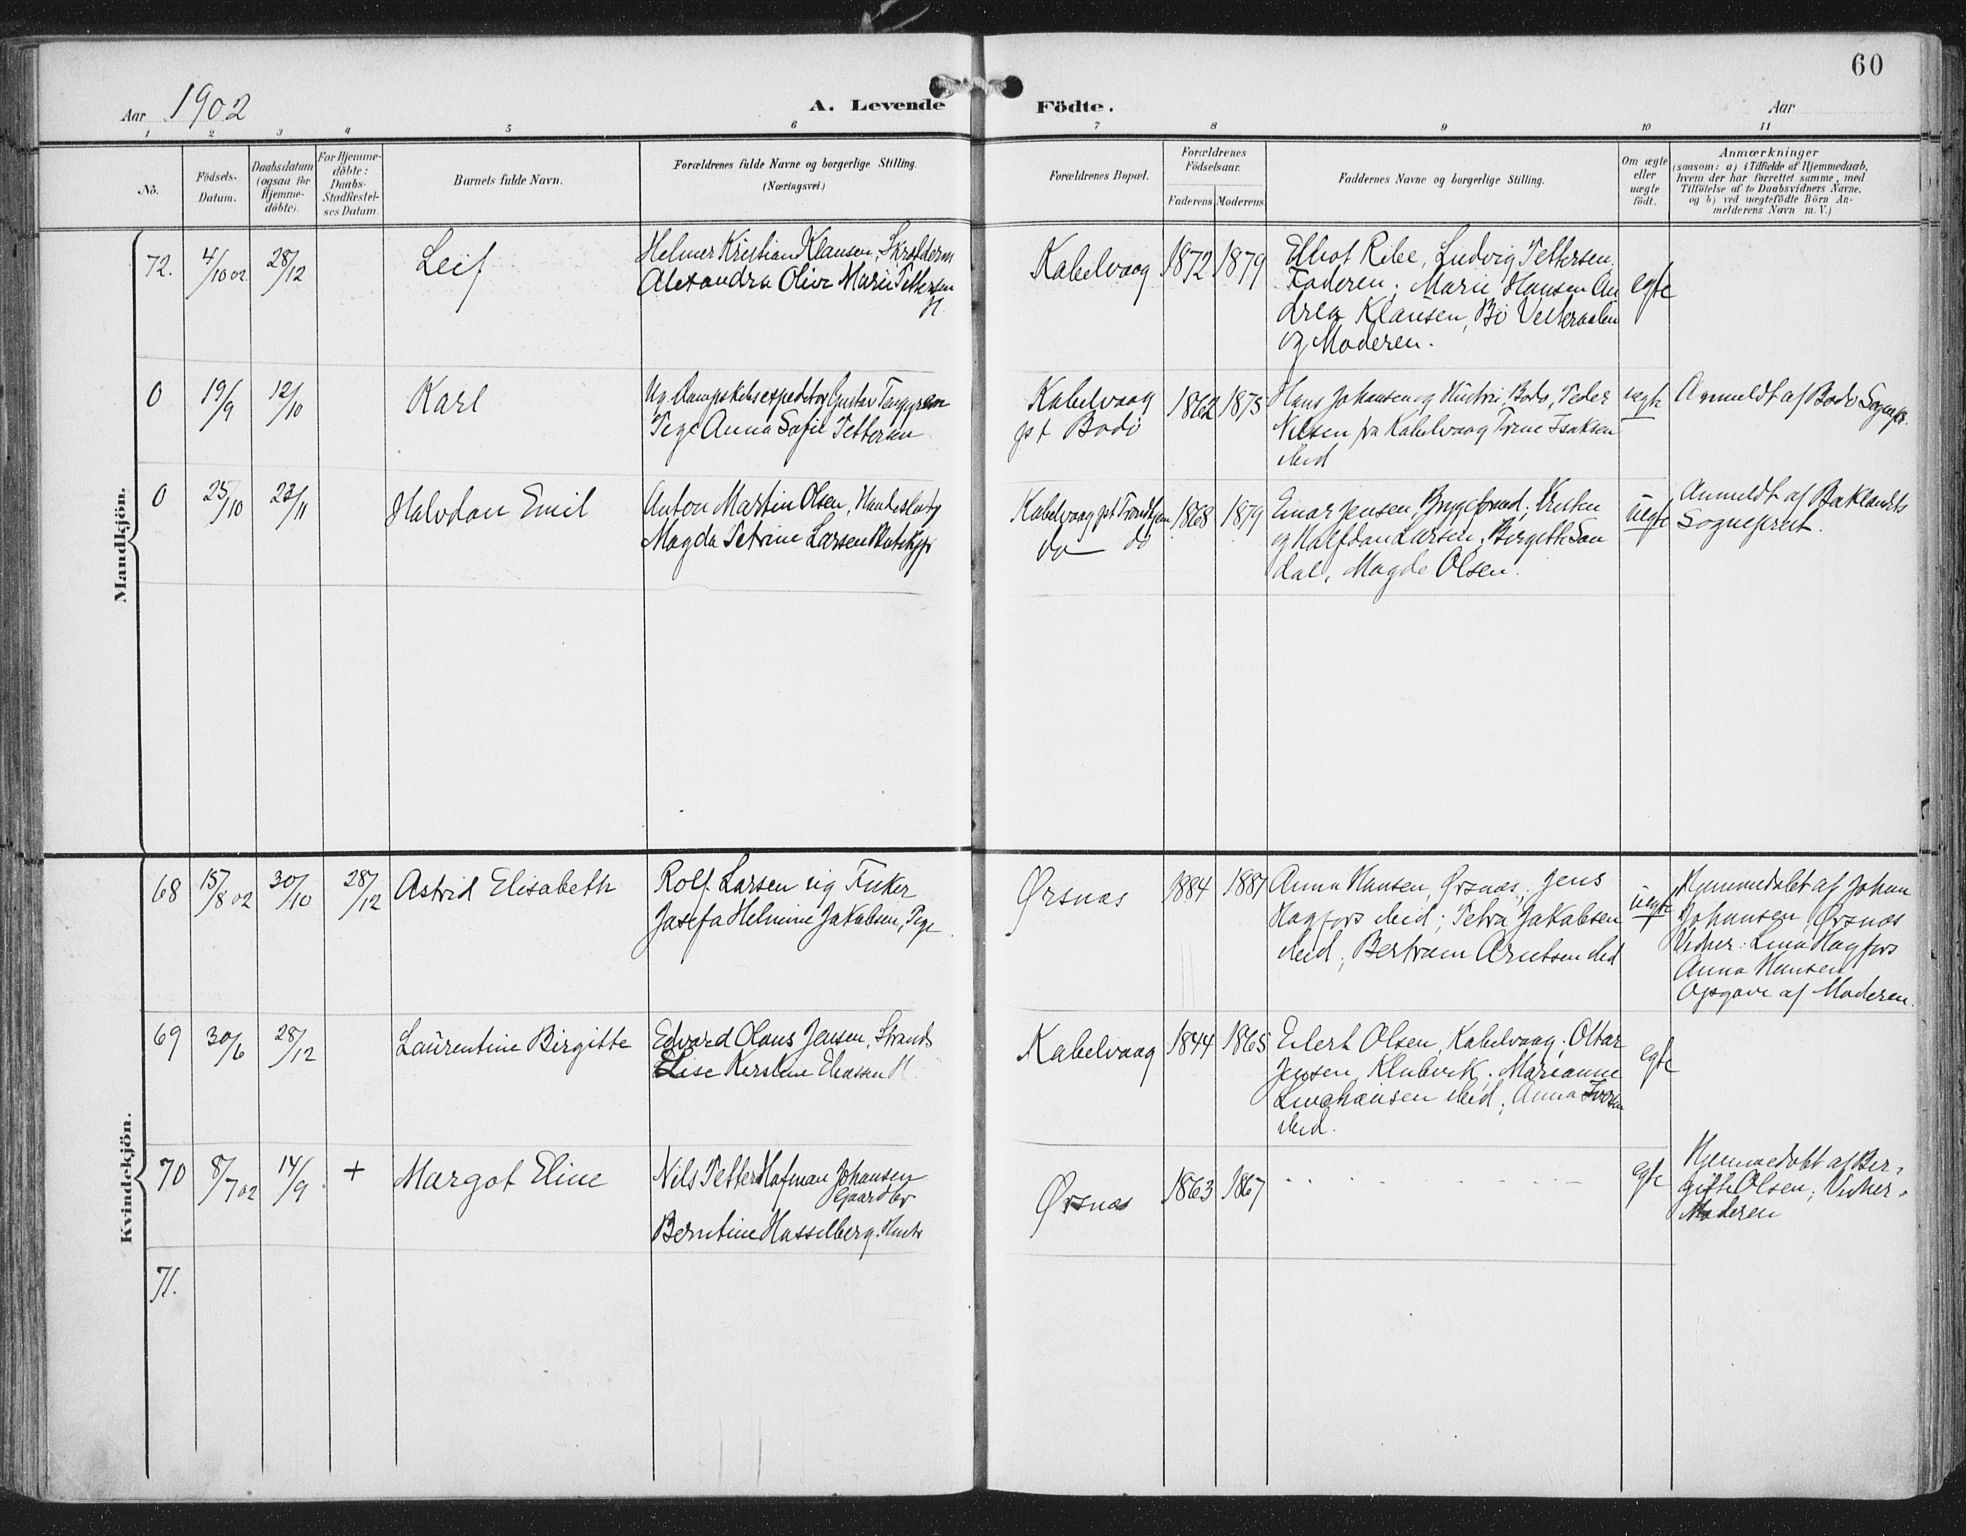 60
Aar 1902
A. Levende
Födte.
Aar
1 2 3 4 5 6 7 8 9 10 11
No.
Födsels-
Datum.
Daabsdatum
(ogsaa for
Hjemme-
döbte).
For Hjemme-
döbte:
Daabs-
Stadfæstel-
ses Datum.
Barnets fulde Navn.
Forældrenes fulde Navne og borgerlige Stilling.
(Næringsvei.)
Forældrenes Bopæl.
Forældrenes
Födselsaar.
Faderens Moderens
Faddernes Navne og borgerlige Stilling.
Om ægte
eller
uægte
födt.
Anmærkninger
(saasom: a) i Tilfælde af Hjemmedaab,
hvem der har forrettet samme, med
Tilföielse af to Daabsvidners Navne.
og b) ved uægtefödte Börn An-
melderens Navn m. V.)
Mandkjön.
72. 4/10 02 28/12 Leif
Helmer Kristian Klausen,
Alexandra Olive Marie Pettersen
H.
Kabelvaag 1872 1879
Elliot Ribe, Ludvig Pettersen,
Faderen; Marie Hansen An
drea Klausen, Bö Vesteraalen
og Moderen.
egte
0 19/9 12/10 Karl
Ug. Dampskibsexpeditør Gustav
Pige Anna Sofie Pettersen
Kabelvaag
pt Bodö
1862 1875
Hans Johansen og Hustru, Bodö, Peder
Nilsen fra Kabelvaag Trine Isaksen
ibid
uegte
Anmeldt af Bodö Sognepr.
0 25/10 23/11 Halvdan Emil
Anton Martin Olsen,
Magda Petrine Larsen
Kabelvaag pt Trondhjem
do do
1868 1879
Einar Jensen, Kristen
og Halfdan Larsen, Birgitte San
dal, Magda Olsen.
uegte
Anmeldt af Baklandets
Sogneprest.
Kvindekjön.
68 15/8 02 30/10 28/12 Astrid Elisabeth
Rolf Larsen ug Fisker
Josefa Helmine Jakobsen, Pige
Ørsnæs 1884 1881
Anna Hansen, Ørsnæs; Jens
Hagfors ibid; Petra Jakobsen
ibid; Bertram Arntsen ibid
uegte
Hjemmedøbt af Johan
Johansen Ørsnæs
Vidner: Lina Hagfors
Anna Hansen
Opgave af Moderen.
69 30/6 28/12 Laurentine Birgitte
Edvard Olaus Jensen, Strands
Elise Kerstine Eliassen H.
Kabelvaag 1844 1865
Eilert Olsen, Kabelvaag; Ottar
Jensen, Klubvik. Marianne
Linghausen ibid; Anna
ibid.
egte
70 8/7 02 14/9 + Margot Eline
Nils Petter Hofman Johansen
Gaardbr
Berntine Hasselberg. Hustr
Ørsnæs 1863 1867
egte
Hjemmedøbt af Bir-
gitte Olsen; Vidner
Moderen
71.